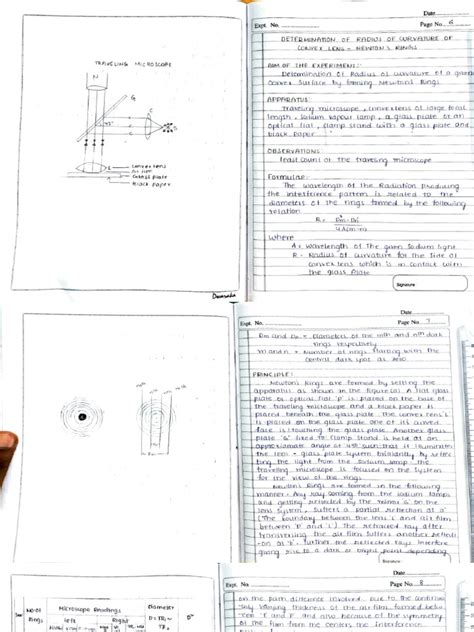 TRAVELING MICROSCOPE
N
G
45°
C
S
L
convex Lens
Air film
Glass plate
Black Paper
Date
Expt. No.
Page No. 6
DETERMINATION OF RADIUS OF CURVATURE OF
CONVEX LENS - NEWTON'S RINGS
AIM OF THE EXPERIMENT:-
Determination of Radius of curvature of a given
Convex Surface by forming Newton's Rings
APPARATUS:
Traveling microscope, convex lens of large focal
length, sodium vapour lamp, a glass plate or an
optical flat, clamp stand with a glass plate and
black paper
OBSERVATIONS:
Least count of the traveling microscope
Formulae:
The wavelength of the Radiation producing
the interference pattern is related to the
diameters of the rings formed by the following
relation
where
λ = Wavelength of the given Sodium light
R - Radius of curvature for the side of
convex lens which is in contact with
the glass Plate
Signature
Date
Expt. No.
Page No. 7
Dm and Dn = Diameters of the mth and nth dark
rings respectively
m and n = Number of rings starting with the
central dark spot as zero
PRINCIPLE:
Newton's Rings are formed by setting the
apparatus as shown in the figure(a). A flat glass
plate or optical flat 'P' is placed on the base
of the traveling microscope and a black paper is
placed beneath the glass plate. The convex lens 'L'
is placed on the glass plate one of its curved
face is touching the glass plate. Another glass
plate 'G' fixed to clamp stand is held at an
approximate angle of 45° such that it illuminates
the lens - glass plate system
ting the light from the sodium lamp. The
traveling microscope is focused on the system
for the view of the rings.
Newton's Rings are formed in the following
manner. Any ray coming from the sodium lamps
and getting reflected by the mirror 'G' on the
lens system, suffers a partial reflection at 'a'
(The boundary between the lens 'L' and air film
between 'P' and 'L') The refracted ray after
transversing the air film suffers another reflecti
-on at 'b', further the reflected rays interfere
giving rise to a dark or bright point depending
Signature
Date
Expt. No.
Page No. 8
on the path difference involved. Due to the continuo
usly varying thickness of the air film formed betw
een 'L' and 'P' and also because of the symmetry
No of
Rings
Microscope Readings
Left
Right
Diameter
D²